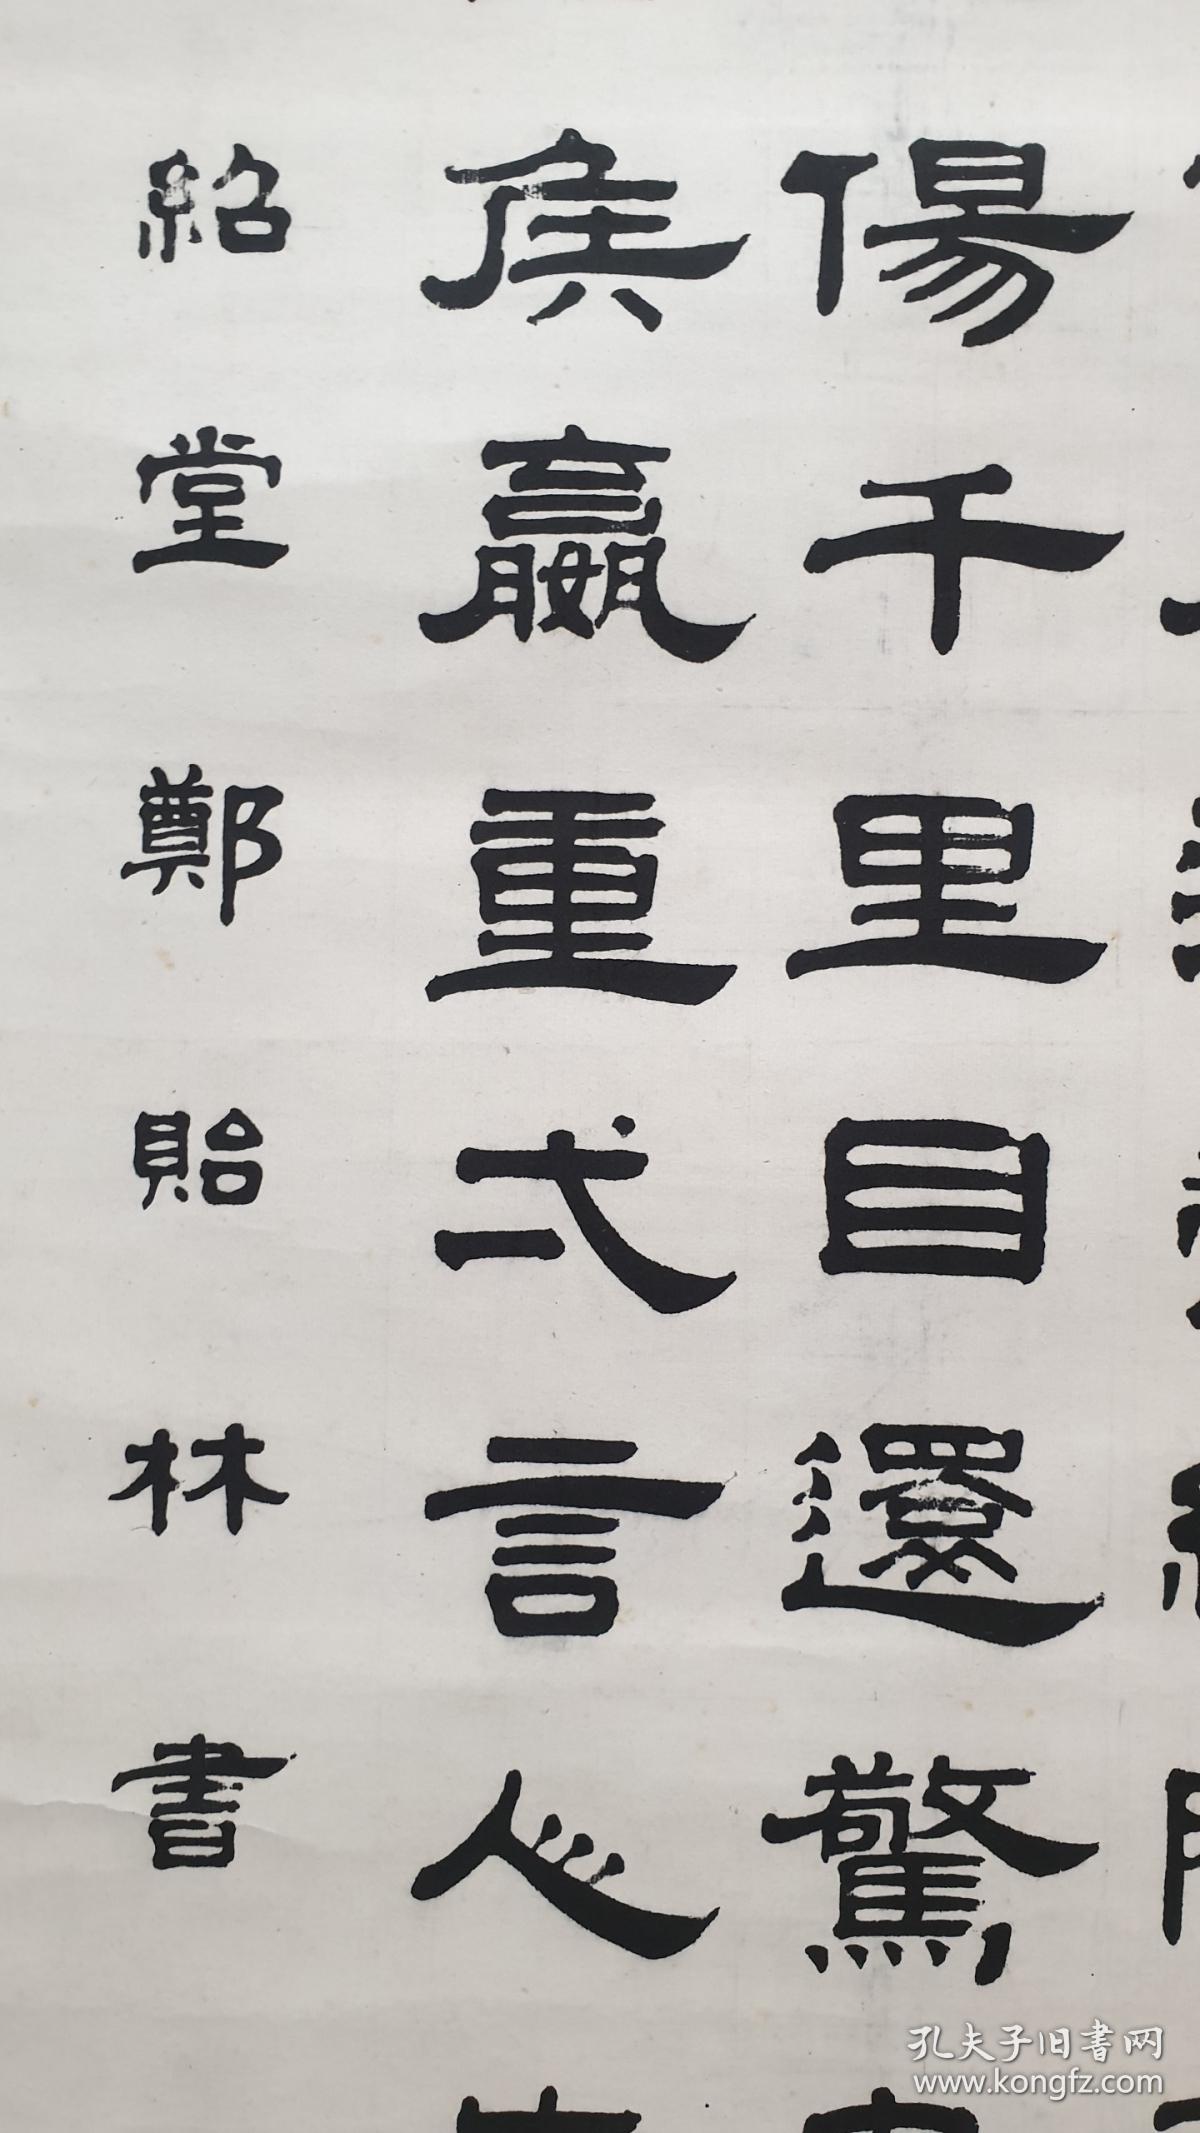 傷千里目還驚
侯嬴重弌言人
紹堂鄭貽林書
孔夫子旧书网
www.kongfz.com